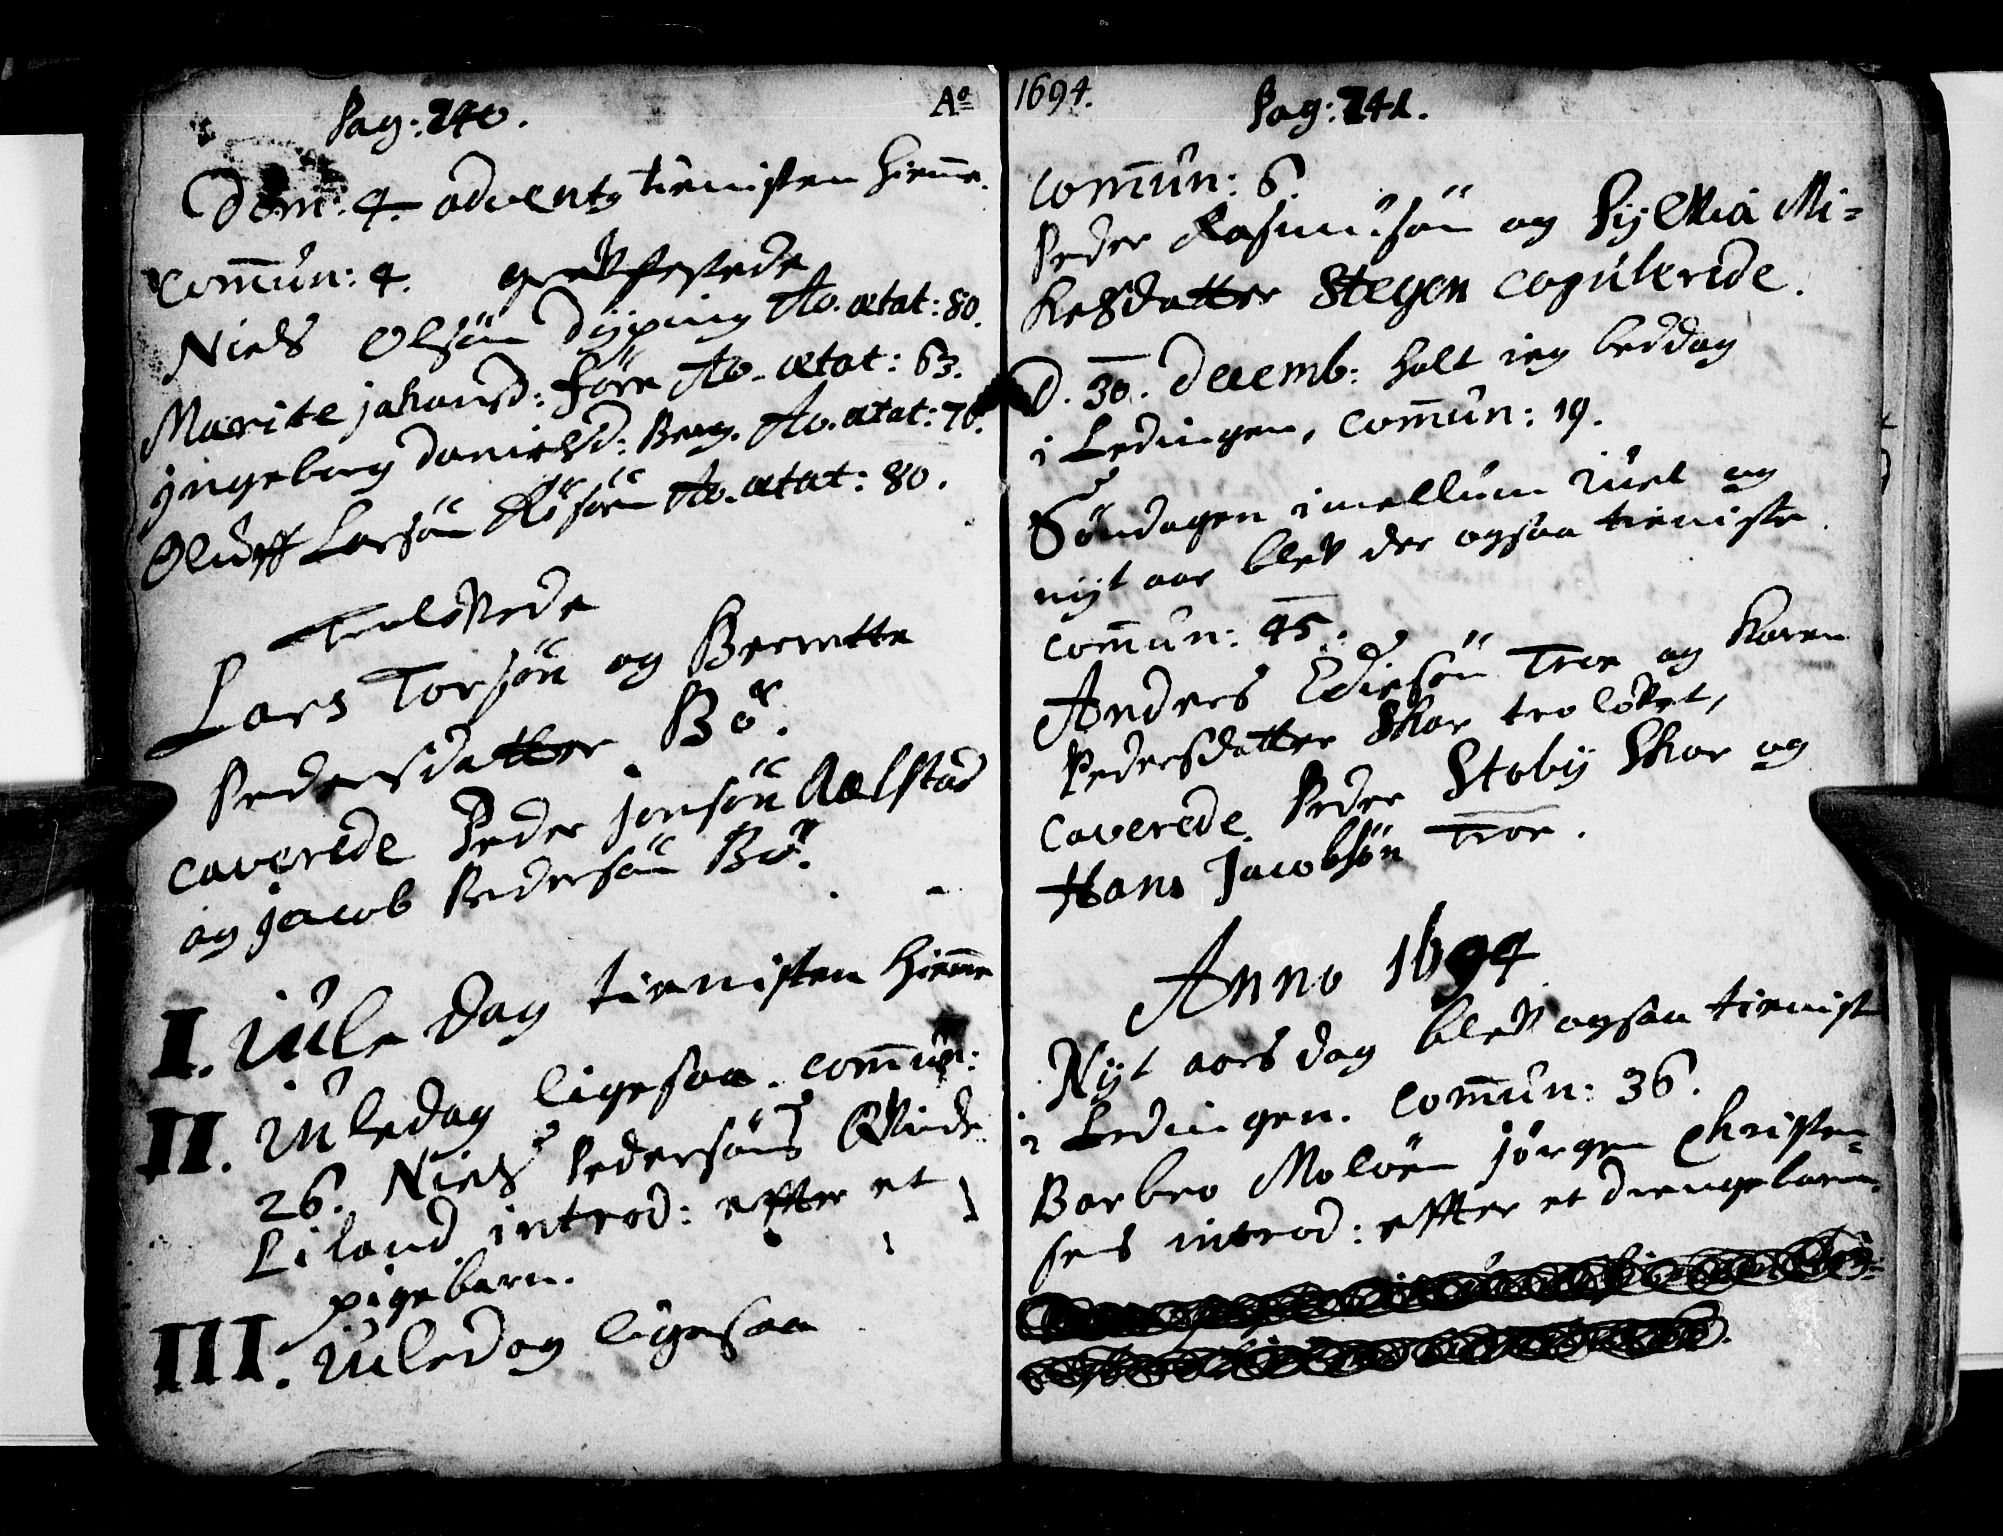 Pag: 240.
Dom. 4. advents tienisten hiemme.
Commun: 4. graffestede
Niels Olsøn Dyping Ao. ætat: 80.
Marite johansd: Före Ao. ætat: 63.
jngeborg danielsd: Berg. Ao. ætat: 76.
Oluff Larsøn Ao. ætat: 80.
Trolofvede
Lars Torsøn og Berrette
Pedersdatter Bö.
caverede Peder jonsøn Aalstad
og jacob Pedersøn Bö.
I. Jule dag tienisten hiemme
II. Juledag ligesaa. Commun:
26. Niels Pedersøns Qvinde
Liland introd: effter et
pigebarn.
III. Juledag ligesaa
Ao 1694. Pag: 241.
Commun: 6.
Peder Rasmusøn og Sylvia Mi=
kelsdatter Stegen copulerede.
D. 30. Decemb: holt ieg beddag
i Lødingen, Commun: 19.
Søndagen imellum Juel og
nyt aar blef der ogsaa tieniste.
Commun: 45.
Anders Edisøn Troe og Karen
Pedersdatter Skar trolofvet,
caverede Peder Stoby Skar og
Hans Jacobsøn Troe.
Anno 1694
Nyt aars dag blef ogsaa tienist
i Lødingen. Commun: 36.
Barbro Moløen jørgen Christen=
sens introd: effter et drengebarn.